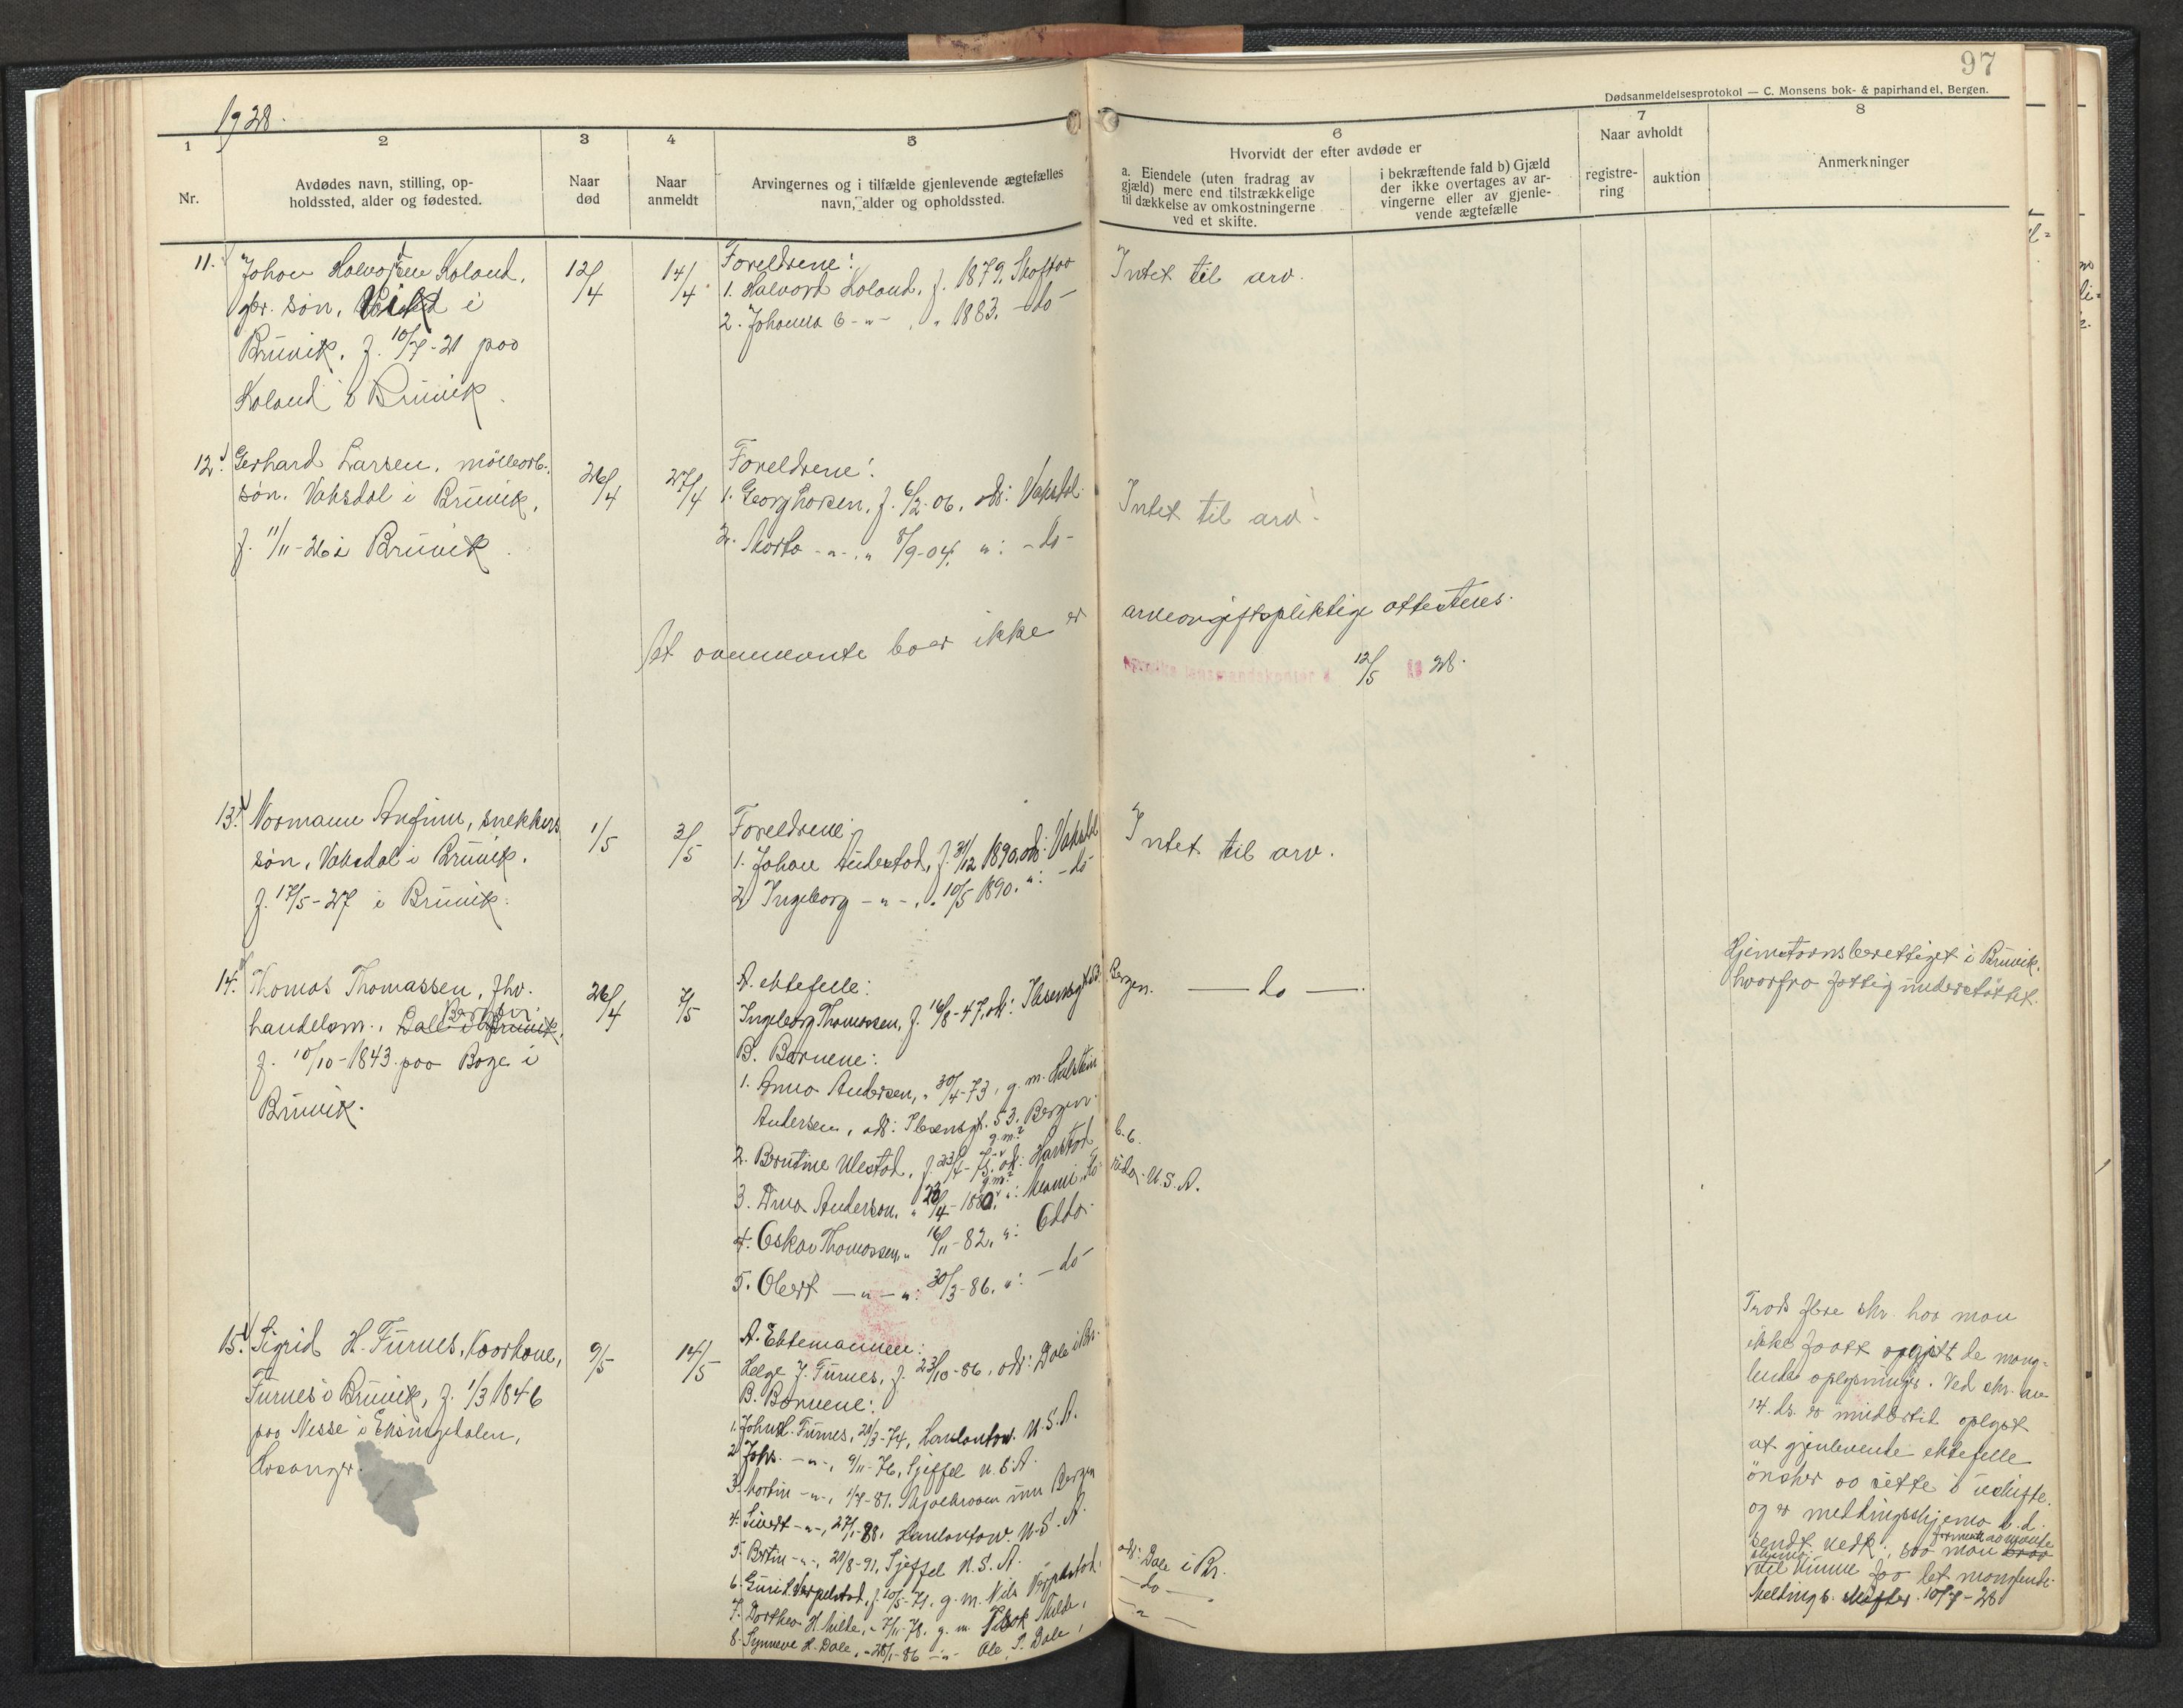 97
Dødsanmeldelsesprotokol — C. Monsens bok- & papirhandel, Bergen.
1928.
1
2
3
4
5
6
7
8
Nr.
Avdødes navn, stilling, op-
holdssted, alder og fødested.
Naar
død
Naar
anmeldt
Arvingernes og i tilfælde gjenlevende ægtefælles
navn, alder og opholdssted.
Hvorvidt der efter avdøde er
a. Eiendele (uten fradrag av
gjæld) mere end tilstrækkelige
til dækkelse av omkostningerne
ved et skifte.
i bekræftende fald b) Gjæld
der ikke overtages av ar-
vingerne eller av gjenle-
vende ægtefælle
Naar avholdt
registre-
ring
auktion
Anmerkninger
11. Johan Halvorsen Koland,
gbr. søn, i
Bruvik, f. 10/7-21 paa
Koland i Bruvik.
12/4
14/4
Foreldrene:
1. Halvord Koland, f. 1879,
2. Johanna -"- , " 1883. -do-
Intet til arv.
12. Gerhard Larsen, møllearb.
søn, Vaksdal i Bruvik,
f. 11/11-26 i Bruvik.
26/4
27/4
Foreldrene:
1. Georg Larsen, f. 6/2-06, adr: Vaksdal
2. Marta -"- , " 8/9-04, ": -do-
Intet til arv.
At ovennevnte boer ikke er arveavgiftspliktige attesteres.
12/5 1928.
13. Normann Arfinn, snekkers
søn, Vaksdal i Bruvik.
f. 17/5-27 i Bruvik.
1/5
3/5
Foreldrene:
1. Johan f. 31/12 1890, adr: Vaksdal
2. Ingeborg -"- , " 10/5 1890. ": -do-
Intet til arv.
14. Thomas Thomassen, fhv.
handelsm., Dale i Bruvik, Bergen
f. 10/10-1843 paa Boge i
Bruvik.
26/4
7/5
A. ektefelle:
Ingeborg Thomassen, f. 16/8-47, adr: Ibsensgt 53 Bergen.
B. Barnene:
1. Anna Andersen, " 30/4-73, g.m. Halstein
Andersen, adr: Ibsensgt. 53, Bergen.
2. Berntine Ulestad, f. 23/7-75, adr: Harstad
g.m.?
3. Anderson, " 1880, ": Miami, Florida, U.S.A.
g.m.?
4. Oskar Thomassen, " 16/11-82, ": Odda.
5. Obert -"- ": 30/3-86, ": -do-
— do —.
Hjemstavnsberettiget i Bruvik,
hvorfra fattigunderstøttet.
15. Sigrid H. Furnes, kaarkone,
Furnes i Bruvik, f. 1/3 1846
paa Nesse i Eksingedalen,
Hosanger.
9/5
14/5
A. Ektemannen:
Helge J. Furnes, f. 23/10-86, adr: Dale i Br.
B. Barnene:
1. John H. Furnes, 20/3-74, U.S.A.
2. Johs. -"-, 9/11-76, U.S.A.
3. Martin -"-, 1/7-81, Bergen
4. Sivert -"-, 27/1-88, U.S.A.
5. Bertin -"-, 20/8-91, U.S.A.
6. Guri H. Vorpelstad, f. 20/5-71, g.m. Nils Vorpelstad, adr: Dale i Br.
7. Dorthea H. Milde, " 7/11-78, g.m. Milde, -do-
8. Synneve H. Dale, " 28/1-86 -"- Ole S. Dale, -"-
Trods flere skr. har man
ikke faatt opgitt de mang-
lende oplysninger. Ved skr. av
14. ds. er imidlertid oplyst
at gjenlevende ektefelle
ønsker aa sitte i uskifte.
og er meldingsskjema b.d.
sendt vedk., saa man
til kunne faa det manglende.
Melding 10/7-28